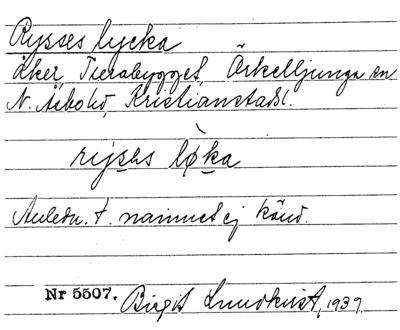 Rysses lycka
Åker, Tierabygget, Örkelljunga sn
N. Åsbohd, Kristianstadsl.
ryses løka
Anledn. t. namnet ej känd.
Nr 5507. Birgit Lundkvist, 1937.